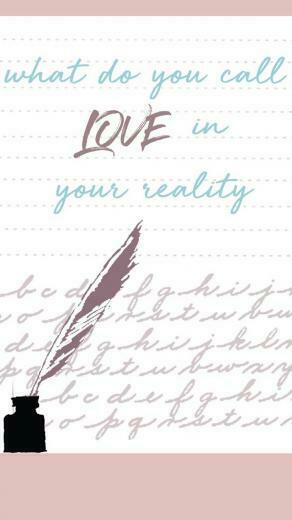 what do you call
LOVE in
your reality
b c d f g h i j
r s t u v w
d g h i j k l
p q r s t u v w x y
b c d e f g h i
o p q r s t u v w